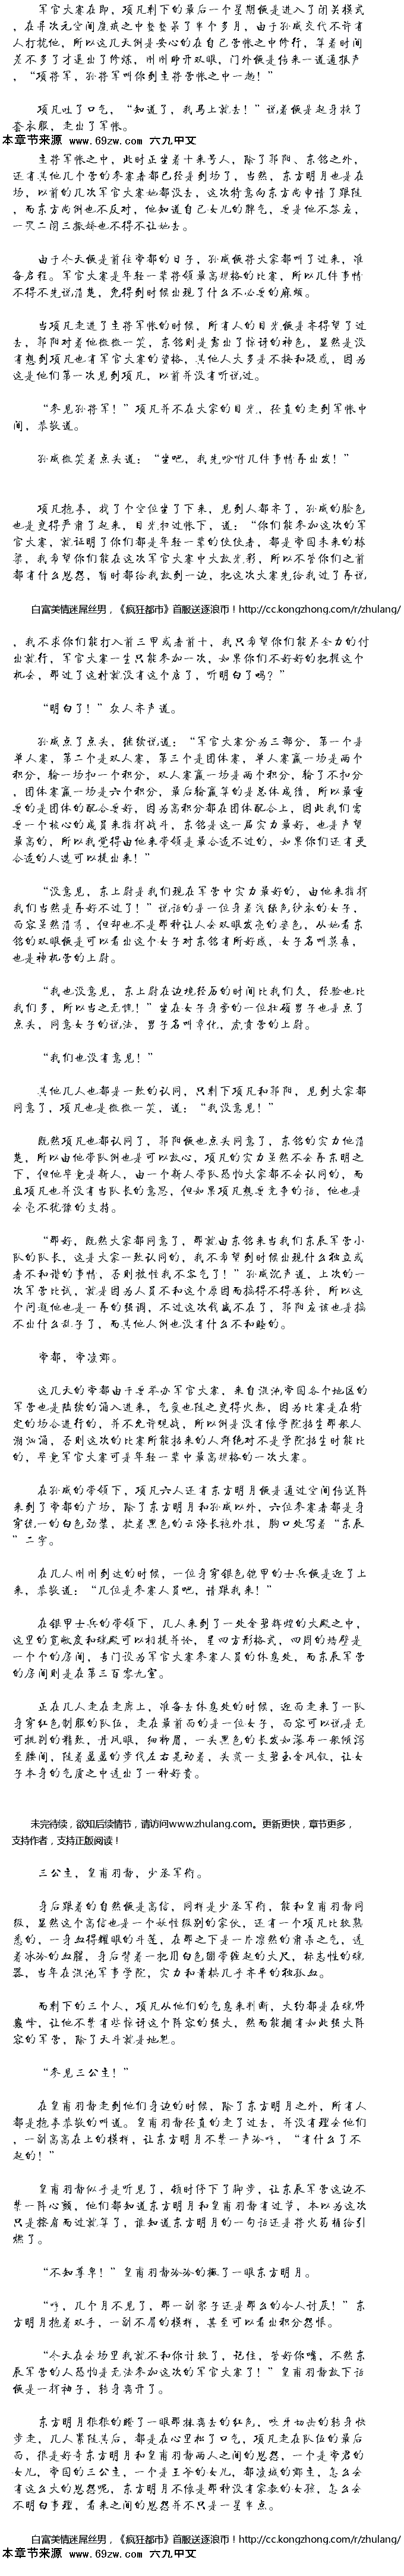 军官大赛在即，项凡剩下的最后一个星期便是进入了闭关模式
，在异次元空间度戒之中整整录了半个多月，由于孙威交代不许有
人打扰他，所以这几天倒是安心的在自己营帐之中修行，算着时间
差不多了才退出了修炼，刚刚睁开双眼，门外便是传来一道通报声
，“项将军，孙将军叫你到主将营帐之中一趟！”
项凡吐了口气，“知道了，我马上就去！”说着便是起身换了
套衣服，走出了军帐。
本章节来源 www.69zw.com 六九中文
主将军帐之中，此时正坐着十来号人，除了郭阳、东铭之外，
还有其他几个营的参赛者都已经是到场了，当然，东方明月也是在
场，以前的几次军官大赛她都没去，这次特意向东方尚申请了跟随
，而东方尚倒也不反对，他知道自己女儿的脾气，要是他不答应，
一哭二闹三撒娇也不得不让她去。
由于今天便是前往帝都的日子，孙威便将大家都叫了过来，准
备启程。军官大赛是年轻一辈将领最高规格的比赛，所以几件事情
不得不先说清楚，免得到时候出现了什么不必要的麻烦。
当项凡走进了主将军帐的时候，所有人的目光便是齐得望了过
去，郭阳对着他微微一笑，东铭则是露出了惊讶的神色，显然是没
有想到项凡也有军官大赛的资格，其他人大多是不接和疑惑，因为
这是他们第一次见到项凡，以前并没有听说过。
“参见孙将军！”项凡并不在大家的目光，径直的走到军帐中
间，恭敬道。
孙威微笑着点头道：“坐吧，我先吩咐几件事情再出发！”
项凡抱拳，找了个空位坐了下来，见到人都齐了，孙威的脸色
也是变得严肃了起来，目光扫过帐下，道：“你们能参加这次的军
官大赛，就证明了你们都是年轻一辈的佼佼者，都是帝国未来的栋
梁，我希望你们能在这次军官大赛中大放光彩，所以不管你们之前
都有什么恩怨，暂时都给我放到一边，把这次大赛先给我过了再说
白富美情迷屌丝男，《疯狂都市》首服送逐浪币！http://cc.kongzhong.com/r/zhulang/
，我不求你们能打入前三甲或者前十，我只希望你们能尽全力的付
出就行，军官大赛一生只能参加一次，如果你们不好好的把握这个
机会，那过了这村就没有这个店了，听明白了吗？”
“明白了！”众人齐声道。
孙威点了点头，继续说道：“军官大赛分为三部分，第一个是
单人赛，第二个是双人赛，第三个是团体赛，单人赛赢一场是两个
积分，输一场扣一个积分，双人赛赢一场是两个积分，输了不扣分
，团体赛赢一场是六个积分，最后输赢算的是总体成绩，所以最重
要的是团体的配合要好，因为高积分都在团体配合上，因此我们需
要一个核心的成员来指挥战斗，东铭是这一届实力最好，也是声望
最高的，所以我觉得由他来带领是最合适不过的，如果你们还有更
合适的人选可以提出来！”
“没意见，东上尉是我们现在军营中实力最好的，由他来指挥
我们当然是再好不过了！”说话的是一位身着浅绿色纱衣的女子，
面容虽然清秀，但却也不是那种让人会双眼发亮的姿色，从她看东
铭的双眼便是可以看出这个女子对东铭有所好感，女子名叫莫桑，
也是神机营的上尉。
“我也没意见，东上尉在边境经历的时间比我们久，经验也比
我们多，所以当之无愧！”坐在女子身旁的一位壮硕男子也是点了
点头，同意女子的说法，男子名叫章化，虎贲营的上尉。
“我们也没有意见！”
其他几人也都是一致的认同，只剩下项凡和郭阳，见到大家都
同意了，项凡也是微微一笑，道：“我没意见！”
既然项凡也都认同了，郭阳便也点头同意了，东铭的实力他清
楚，所以由他带队倒也是可以放心，项凡的实力虽然不会再东明之
下，但他毕竟是新人，由一个新人带队恐怕大家都不会认同的，而
且项凡也并没有当队长的意思，但如果项凡想要竞争的话，他也是
会毫不犹豫的支持。
“那好，既然大家都同意了，那就由东铭来当我们东辰军营小
队的队长，这是大家一致认同的，我不希望到时候出现什么独立或
者不和谐的事情，否则教性我不客气了！”孙威沉声道，上次的一
次军营比试，就是因为人员不和这个原因而搞得不得善终，所以这
个问题他也是一再的强调，不过这次钱威不在了，郭阳应该也是搞
不出什么乱子了，而其他人倒也没有什么不和睦的。
帝都，帝凌郊。
这几天的帝都由于要举办军官大赛，来自混沌帝国各个地区的
军营也是陆续的涌入进来，气氛也随之变得火热，因为比赛是在特
定的场合进行的，并不允许观战，所以倒是没有像学院招生那般人
潮汹涌，否则这次的比赛所能招来的人群绝对不是学院招生时能比
的，毕竟军官大赛可是年轻一辈中最高规格的一次大赛。
在孙威的带领下，项凡六人还有东方明月便是通过空间传送阵
来到了帝都的广场，除了东方明月和孙威以外，六位参赛者都是身
穿统一的白色劲装，披着黑色的云海长袍外挂，胸口处写着“东辰
”二字。
在几人刚刚到达的时候，一位身穿银色铠甲的士兵便是迎了上
来，恭敬道：“几位是参赛人员吧，请跟我来！”
在银甲士兵的带领下，几人来到了一处金碧辉煌的大殿之中，
这里的宽敞度和魂殿可以相提并论，呈四方形格式，四周的墙壁是
一个个的房间，专门设为军官大赛参赛人员的休息处，而东辰军营
的房间则是在第三百零九室。
正在几人走在走廊上，准备去休息处的时候，迎面走来了一队
身穿红色制服的队伍，走在最前面的是一位女子，面容可以说是无
可挑剔的精致，丹凤眼，细柳眉，一头黑色的长发如瀑布一般倾泻
至腰间，随着盈盈的步伐左右晃动着，头戴一支碧玉金凤钗，让女
子本身的气质之中透出了一种好贵。
未完待续，欲知后续情节，请访问www.zhulang.com。更新更快，章节更多，
支持作者，支持正版阅读！
三公主，皇甫羽静，少丞军衔。
身后跟着的自然便是高信，同样是少丞军衔，能和皇甫羽静同
级，显然这个高信也是一个妖性级别的家伙，还有一个项凡比较熟
悉的，一身血得耀眼的斗蓬，在那之下是一片凛然的肃杀之气，透
着冰冷的血腥，身后背着一把用白色绷带缠起的大尺，标志性的魂
器，当年在混沌军事学院，实力和萧枫几乎齐平的独孤血。
而剩下的三个人，项凡从他们的气息来判断，大约都是在魂师
巅峰，让他不禁有些惊讶这个阵容的强大，然而能拥有如此强大阵
容的军营，除了天斗就是地魁。
“参见三公主！”
在皇甫羽静走到他们身边的时候，除了东方明月之外，所有人
都是抱拳恭敬的叫道。皇甫羽静径直的走了过去，并没有理会他们
，一副高高在上的模样，让东方明月不禁一声冷哼，“有什么了不
起的！”
皇甫羽静似乎是听见了，顿时停下了脚步，让东辰军营这边不
禁一阵心颤，他们都知道东方明月和皇甫羽静有过节，本以为这次
只是擦肩而过就算了，谁知道东方明月的一句话还是将火药桶给引
燃了。
“不知尊卑！”皇甫羽静冷冷的撇了一眼东方明月。
“哼，几个月不见了，那一副架子还是那么的令人讨厌！”东
方明月抱着双手，一副不屑的模样，甚至可以看出积分怨恨。
“今天在会场里我就不和你计较了，记住，管好你嘴，不然东
辰军营的人恐怕是无法参加这次的军官大赛了！”皇甫羽静放下话
便是一挥袖子，转身离开了。
东方明月狠狠的瞪了一眼那抹离去的红色，咬牙切齿的转身快
步走，几人紧随其后，都是在心里松了口气，项凡走在队伍的最后
面，很是好奇东方明月和皇甫羽静两人之间的恩怨，一个是帝君的
女儿，帝国的三公主，一个是王爷的女儿，都凌城的郡主，怎么会
有这么大的恩怨呢，东方明月不像是那种没有家教的女孩，怎么会
不明白事理，看来之间的恩怨并不只是一星半点。
白富美情迷屌丝男，《疯狂都市》首服送逐浪币！http://cc.kongzhong.com/r/zhulang/
本章节来源 www.69zw.com 六九中文